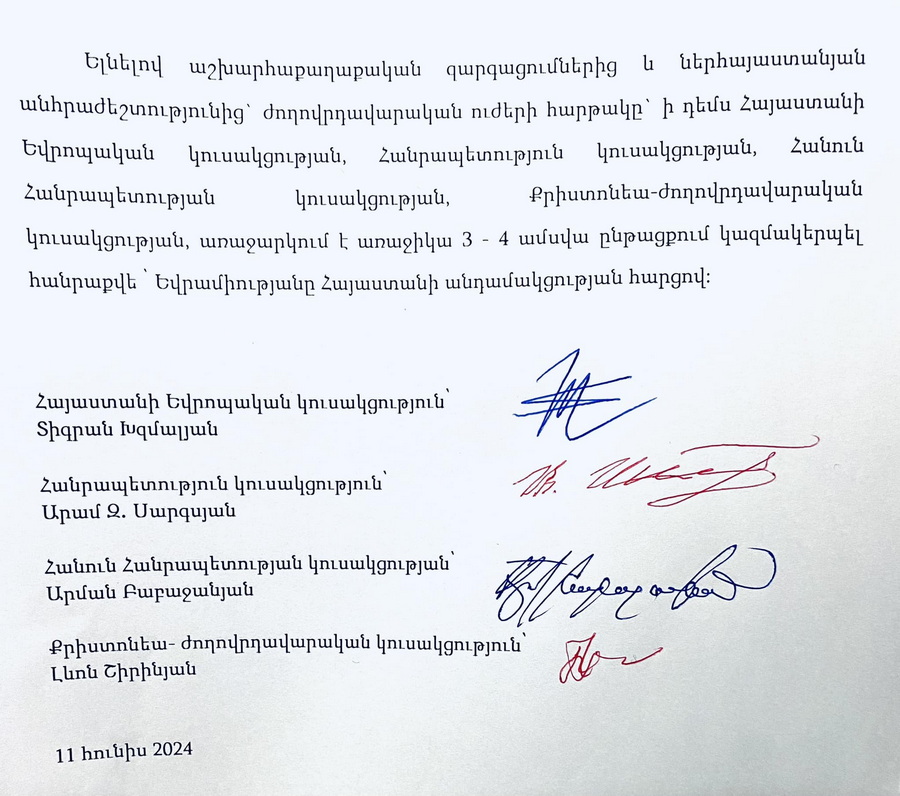 Ելնելով աշխարհաքաղաքական զարգացումներից և ներհայաստանյան
անհրաժեշտությունից՝ ժողովրդավարական ուժերի հարթակը՝ ի դեմս Հայաստանի
Եվրոպական կուսակցության, Հանրապետություն կուսակցության, Հանուն
Հանրապետության կուսակցության, Քրիստոնեա-ժողովրդավարական
կուսակցության, առաջարկում է առաջիկա 3 - 4 ամսվա ընթացքում կազմակերպել
հանրաքվե ՝ Եվրամիությանը Հայաստանի անդամակցության հարցով:
Հայաստանի Եվրոպական կուսակցություն՝
Տիգրան Խզմալյան
Հանրապետություն կուսակցություն՝
Արամ Զ. Սարգսյան
Հանուն Հանրապետության կուսակցություն՝
Արման Բաբաջանյան
Քրիստոնեա- ժողովրդավարական կուսակցություն՝
Լևոն Շիրինյան
11 հունիս 2024